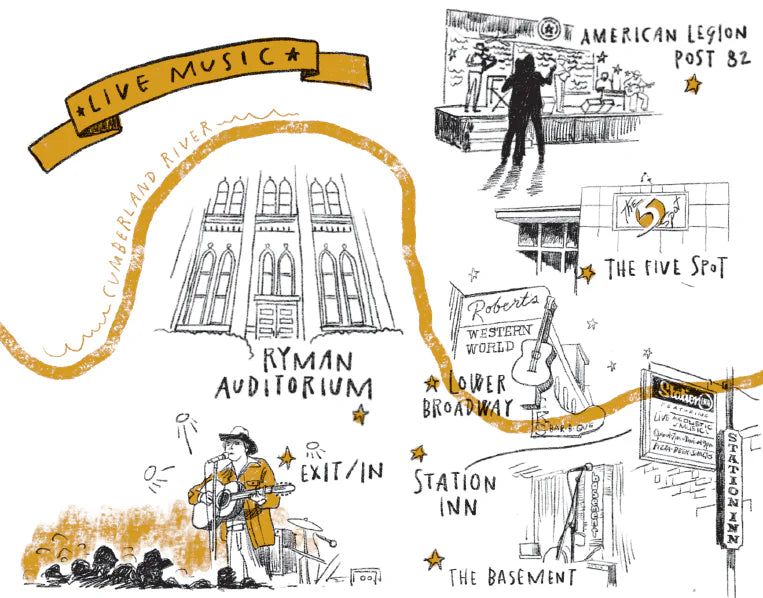 ★LIVE MUSIC★
CUMBERLAND RIVER
AMERICAN LEGION
POST 82
The 5 Spot
THE FIVE SPOT
RYMAN
AUDITORIUM
Roberts
WESTERN
WORLD
LOWER
BROADWAY
BAR-B-QUE
EXIT/IN
STATION
INN
Station
FEATURING
LIVE ACOUSTIC
MUSIC
STATION INN
basement
THE BASEMENT